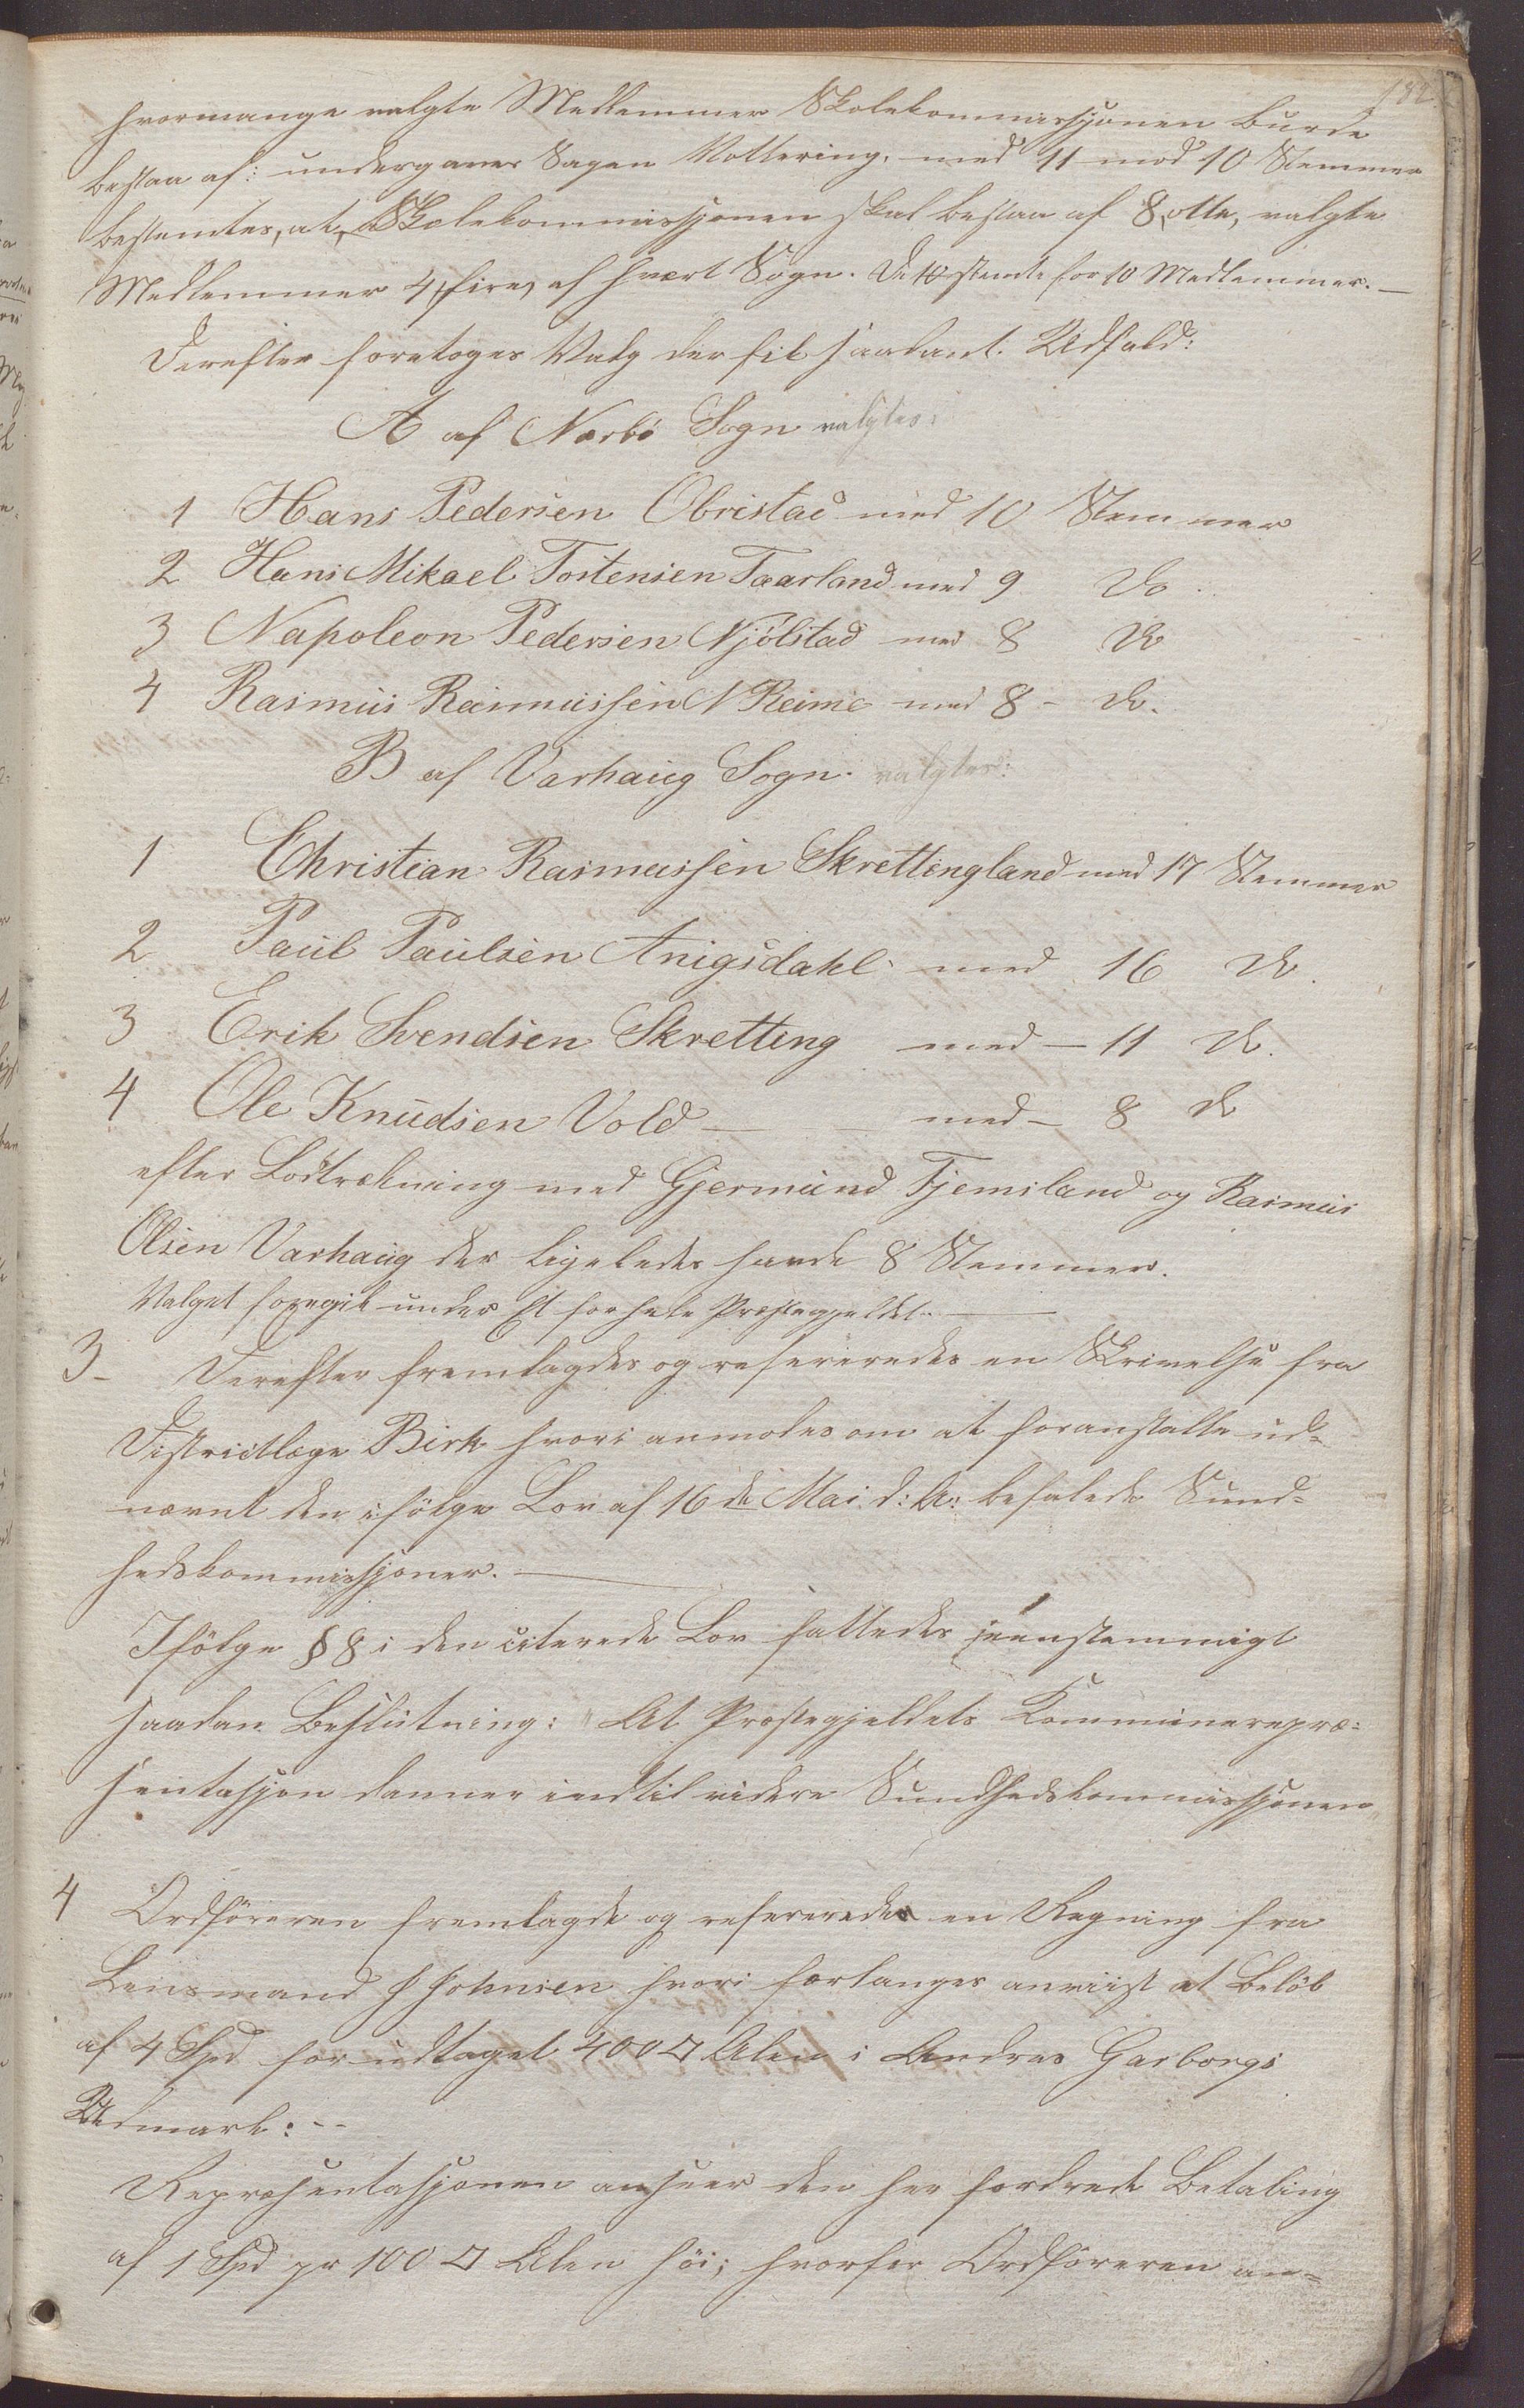 182
hvormange valgte Medlemmer Skolekommissjonen burde
bestaa af: undergaves Sagen Vottering, med 11 mod 10 Stemmer
bestemtes, at Skolekommissjonen skal bestaa af 8, otte, valgte
Medlemmer 4, fire, af hvert Sogn. De 10 stemte for 10 Medlemmer. —
Derefter foretoges Valg der fik saadant Udfald:
A af Nærbö Sogn valgtes:
1 Hans Pedersen Obristad med 10 Stemmer
2 Hans Mikael Tostensen Taarland med 9 Do.
3 Napoleon Pedersen Njölstad med 8 Do
4 Rasmus Rasmussen N Reime med 8 - Do.
B af Varhaug Sogn valgtes:
1 Christian Rasmussen Skrettingland med 17 Stemmer
2 Paul Paulsen Anigsdahl med 16 Do.
3 Erik Svendsen Skretting med — 11 Do.
4 Ole Knudsen Vold — med — 8 Do
efter Lodtrækning med Gjermund Tjemsland og Rasmus
Olsen Varhaug der ligeledes havde 8 Stemmer.
Valget foregik under Et for hele Præstegjeldet. —
3 - Derefter fremlagdes og refereredes en Skrivelse fra
Districtlæge Birk hvori anmodes om at foranstalte ud-
nævnt den ifölge Lov af 16de Mai d: A: befalede Sund-
hedskommissjoner. —
Ifölge § 8 i den citerede Lov fattedes eenstemmigt
saadan Beslutning: "At Præstegjeldets Kommunerepræ-
sentasjon danner indtil videre Sundhedskommissjonen"
4 Ordföreren fremlagde og refererede en Regning fra
Lensmand J Johnsen hvori forlanges anviist et Belöb
af 4 Spd for udtaget 400 □ Alen i Andreas Garborgs
Udmark: --
Repræsentasjonen anseer den her fordrede Betaling
af 1 Spd pr 100 □ Alen höi; hvorfor Ordföreren an-